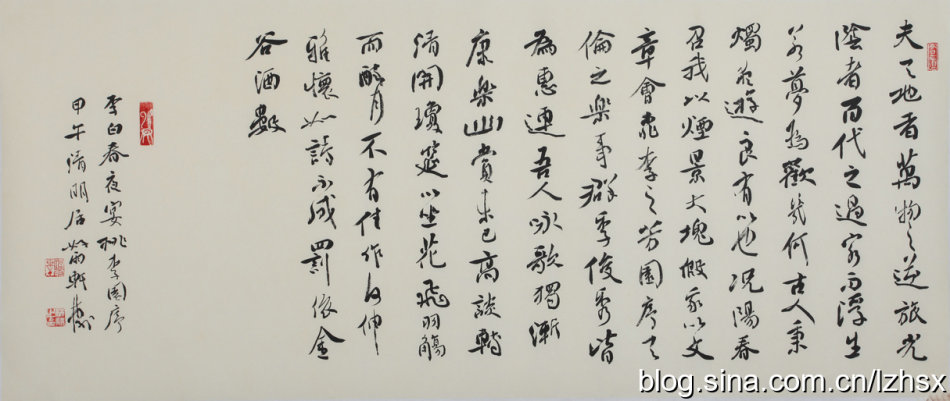 夫天地者萬物之逆旅光
陰者百代之過客而浮生
若夢為歡幾何古人秉
燭夜遊良有以也況陽春
召我以煙景大塊假我以文
章會桃李之芳園序天
倫之樂事群季俊秀皆
為惠連吾人詠歌獨慚
康樂幽賞未已高談轉
清開瓊筵以坐花飛羽觴
而醉月不有佳作何伸
雅懷如詩不成罰依金
谷酒數
李白春夜宴桃李園序
甲午清明后
blog.sina.com.cn/lzhsx